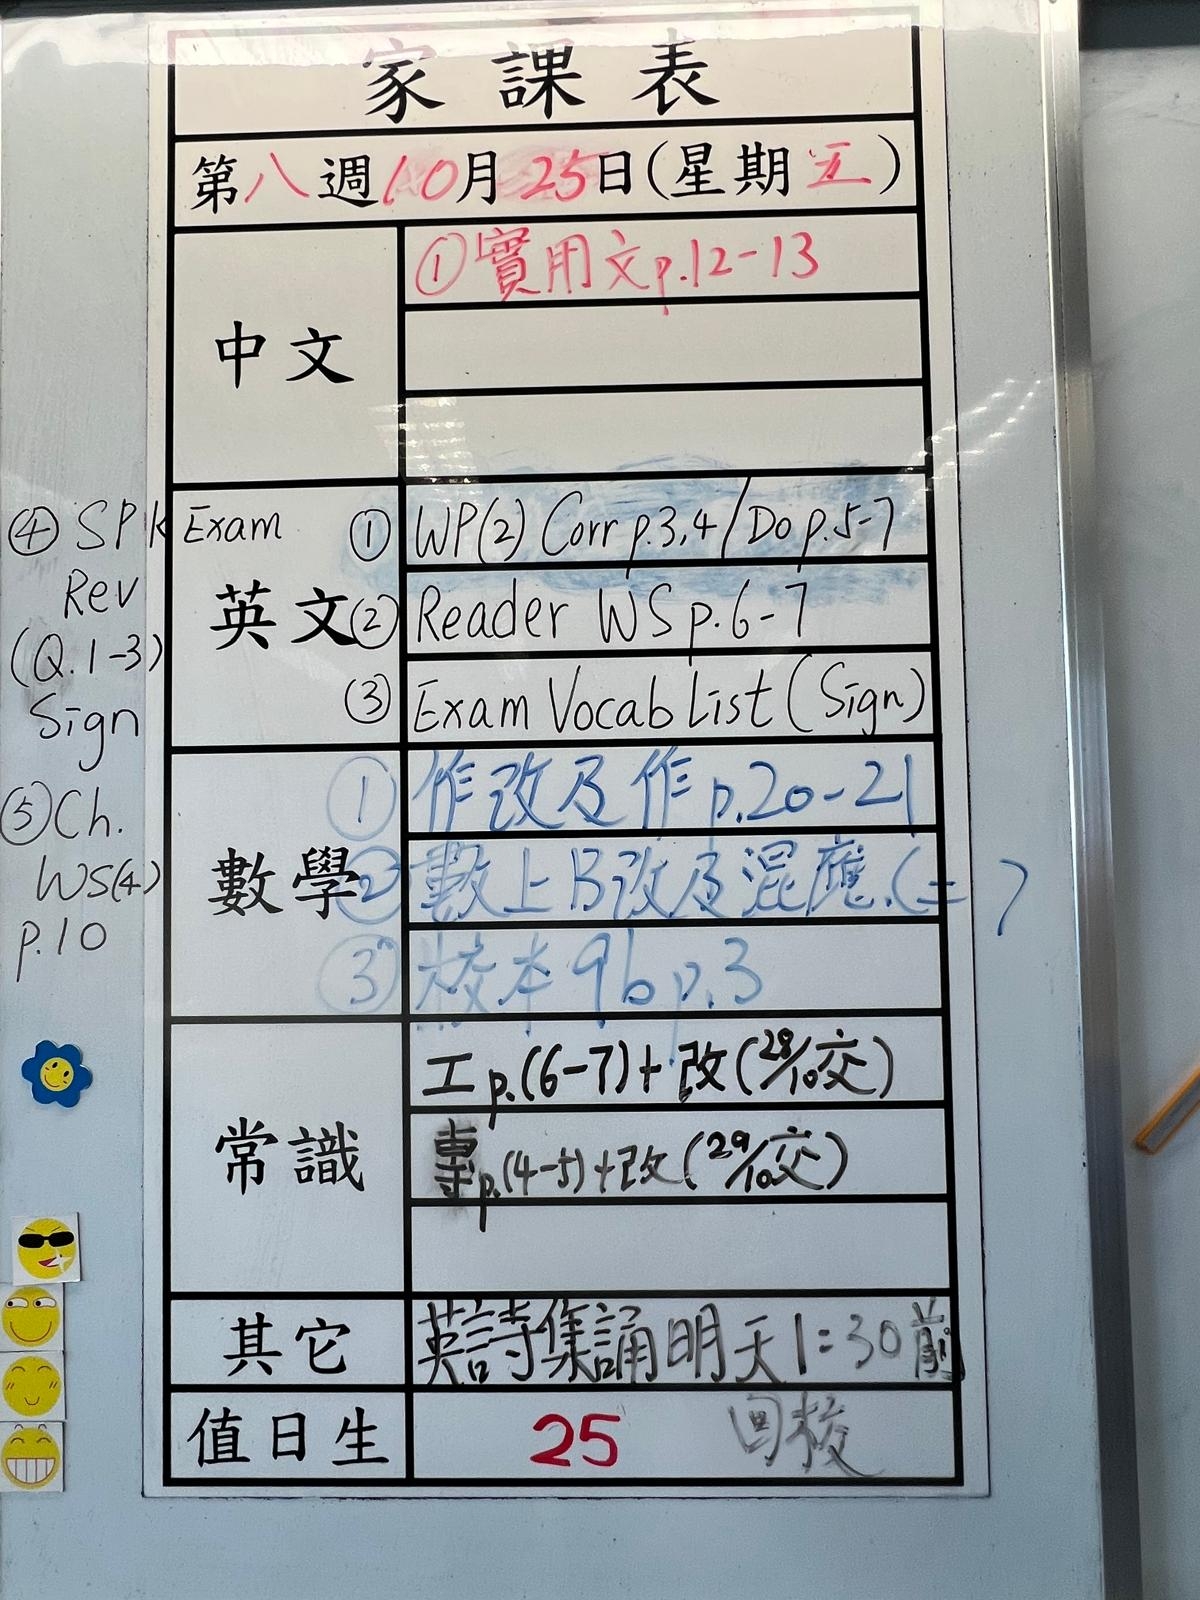 家課表
第八週10月25日(星期五)
中文
①實用文p.12-13
英文
① WP(2) Corr p.3,4/Do p.5-7
② Reader WS p.6-7
③ Exam Vocab List (Sign)
④ SPK Exam
Rev
(Q.1-3)
Sign
⑤ Ch.
WS(4)
p.10
數學
① 作改及作p.20-21
② 數上B改及混應.(二)
③ 校本9b p.3
常識
工p.(6-7)+改(28/10交)
專p.(4-5)+改(29/10交)
其它
英詩集誦明天1:30前
回校
值日生
25